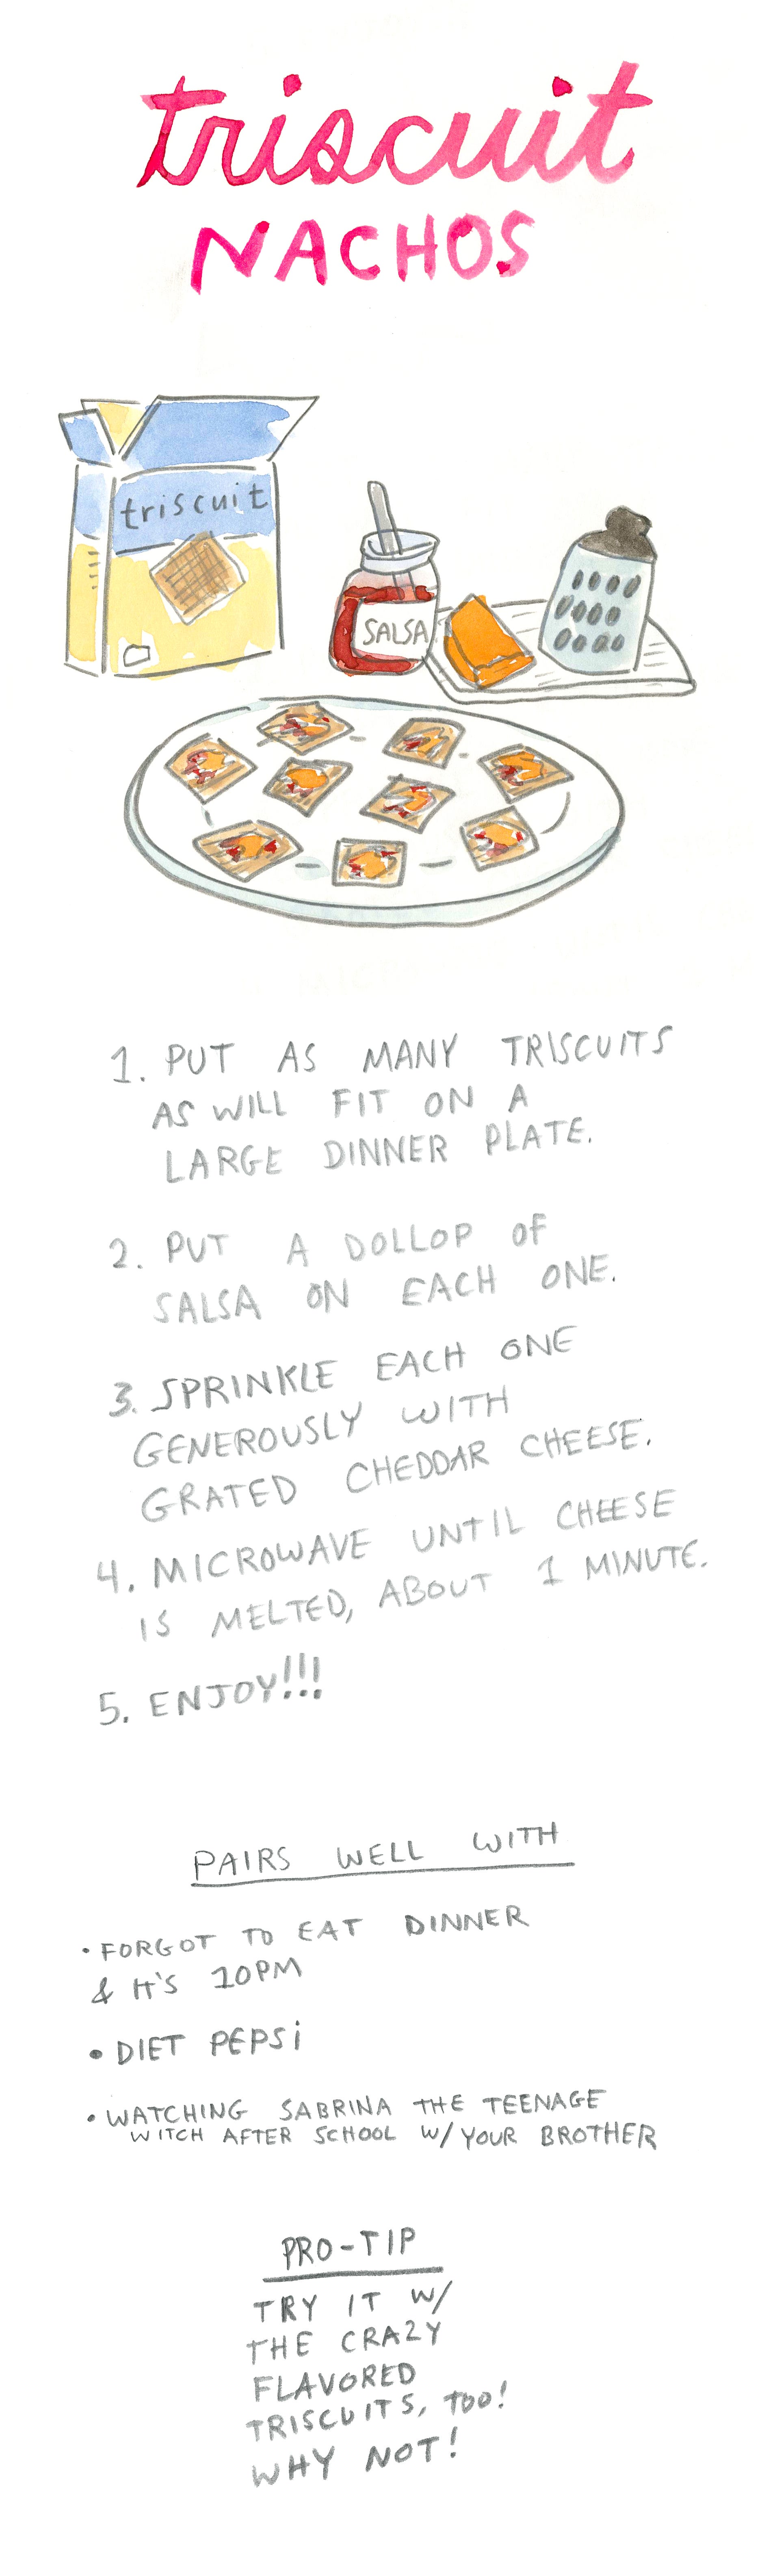 triscuit
NACHOS
triscuit
SALSA
1. PUT AS MANY TRISCUITS
AS WILL FIT ON A
LARGE DINNER PLATE.
2. PUT A DOLLOP OF
SALSA ON EACH ONE.
3. SPRINKLE EACH ONE
GENEROUSLY WITH
GRATED CHEDDAR CHEESE.
4. MICROWAVE UNTIL CHEESE
IS MELTED, ABOUT 1 MINUTE.
5. ENJOY!!!
PAIRS WELL WITH
• FORGOT TO EAT DINNER
& IT'S 10PM
• DIET PEPSI
• WATCHING SABRINA THE TEENAGE
WITCH AFTER SCHOOL W/ YOUR BROTHER
PRO-TIP
TRY IT W/
THE CRAZY
FLAVORED
TRISCUITS, TOO!
WHY NOT!